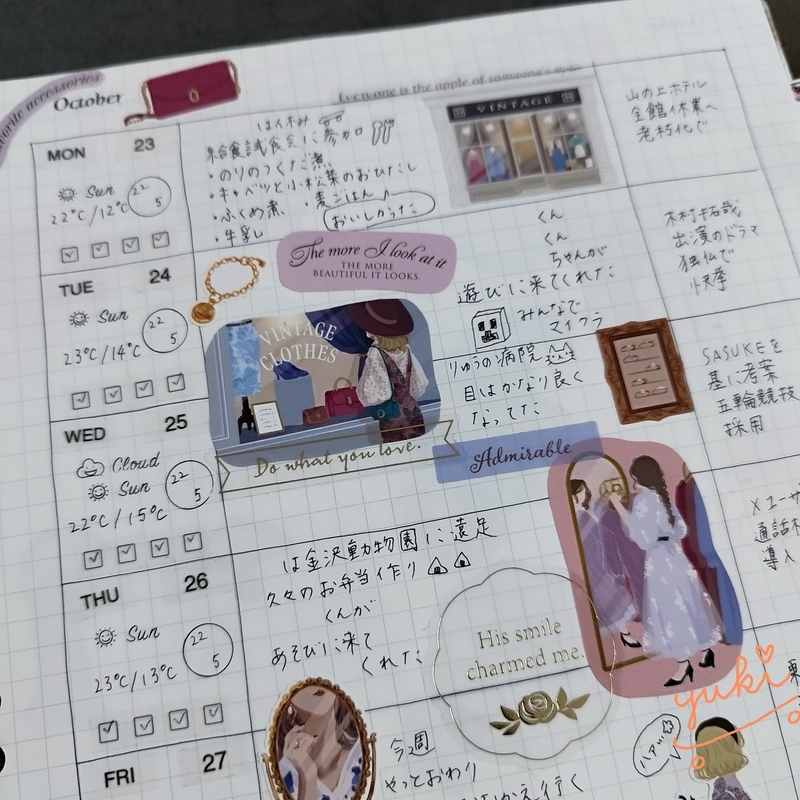 October
Everyone is the apple of someone's
MON 23
Sun
22℃/12℃
22
5
は休み
給食試食会に参加
・のりのつくだ煮
・キャベツと小松菜のおひたし
・ふくめ煮 ・麦ごはん
・牛乳
おいしかった
VINTAGE
山の上ホテル
全館休業へ
老朽化で
TUE 24
Sun
23℃/14℃
22
5
The more I look at it
THE MORE
BEAUTIFUL IT LOOKS.
VINTAGE
CLOTHES
くん
くん
ちゃんが
遊びに来てくれた
みんなで
マイクラ
木村拓哉
出演のドラマ
独仏で
快挙
WED 25
Cloud
Sun
22℃/15℃
22
5
Do what you love.
りゅうの病院
目はかなり良く
なってた
Admirable
SASUKEを
基に考案
五輪競技
採用
THU 26
Sun
23℃/13℃
22
5
は金沢動物園に遠足
久々のお弁当作り
くんが
あそびに来て
くれた
His smile
charmed me.
導入
FRI 27
今週
やっとおわり
yuki